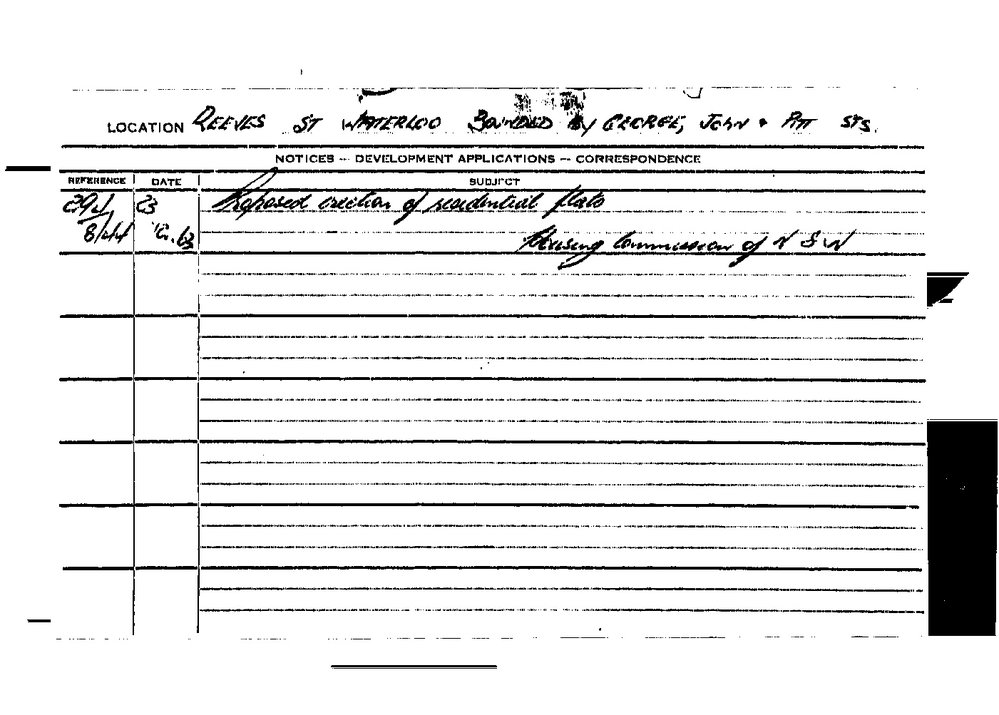 LOCATION REEVES ST WATERLOO BOUNDED BY GEORGE, JOHN & PITT STS.
NOTICES - DEVELOPMENT APPLICATIONS - CORRESPONDENCE
REFERENCE DATE SUBJECT
23 Proposed erection of residential flats
Housing Commission of N S W